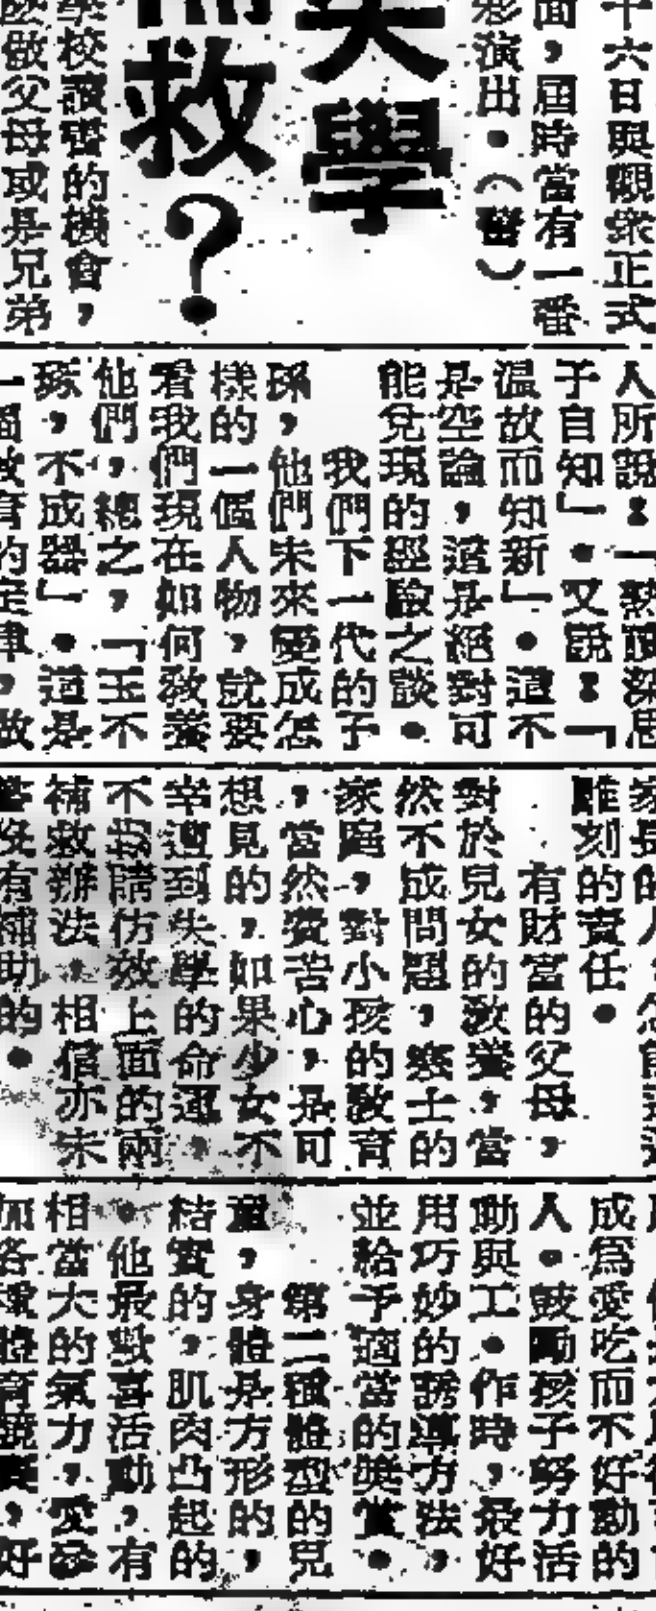 十六日與觀衆正式
面，屆時當有一番
彩演出。（醫）
失學
救？
學校讀書的機會，
做父母或是兄弟
人所說：「熟讀深思
子自知」。又說：「
溫故而知新」。這不
是空論，這是絕對可
能兌現的經驗之談。
我們下一代的子
孫，他們未來變成怎
樣的一個人物，就要
看我們現在如何敎養
他們，總之，「玉不
琢，不成器」。這是
一個敎育的定律，做
家長的人，怎能
雕刻的責任。
有財富的父母，
對於兒女的敎養，當
然不成問題，寒士的
家庭，對小孩的敎育
，當然費苦心，是可
想見的，如果少女不
幸遭到失學的命運，
不妨請仿效上面的兩
補救辦法，相信亦未
沒有補助的。
成爲愛吃而不好動的
人。鼓勵孩子努力活
動與工作時，最好
用巧妙的誘導方法，
並給予適當的獎賞。
第二種體型的兒
童，身體是方形的，
結實的，肌肉凸起的
，他最歡喜活動，有
相當大的氣力，愛
各種體育競賽，好